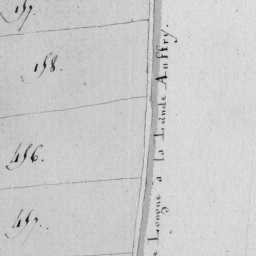 157.
158.
456.
457.
Longne a la Lande Auffry.